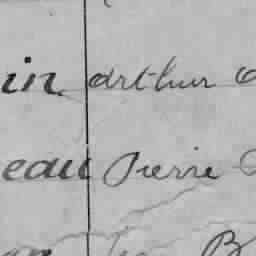 in Arthur
eau Pierre
B